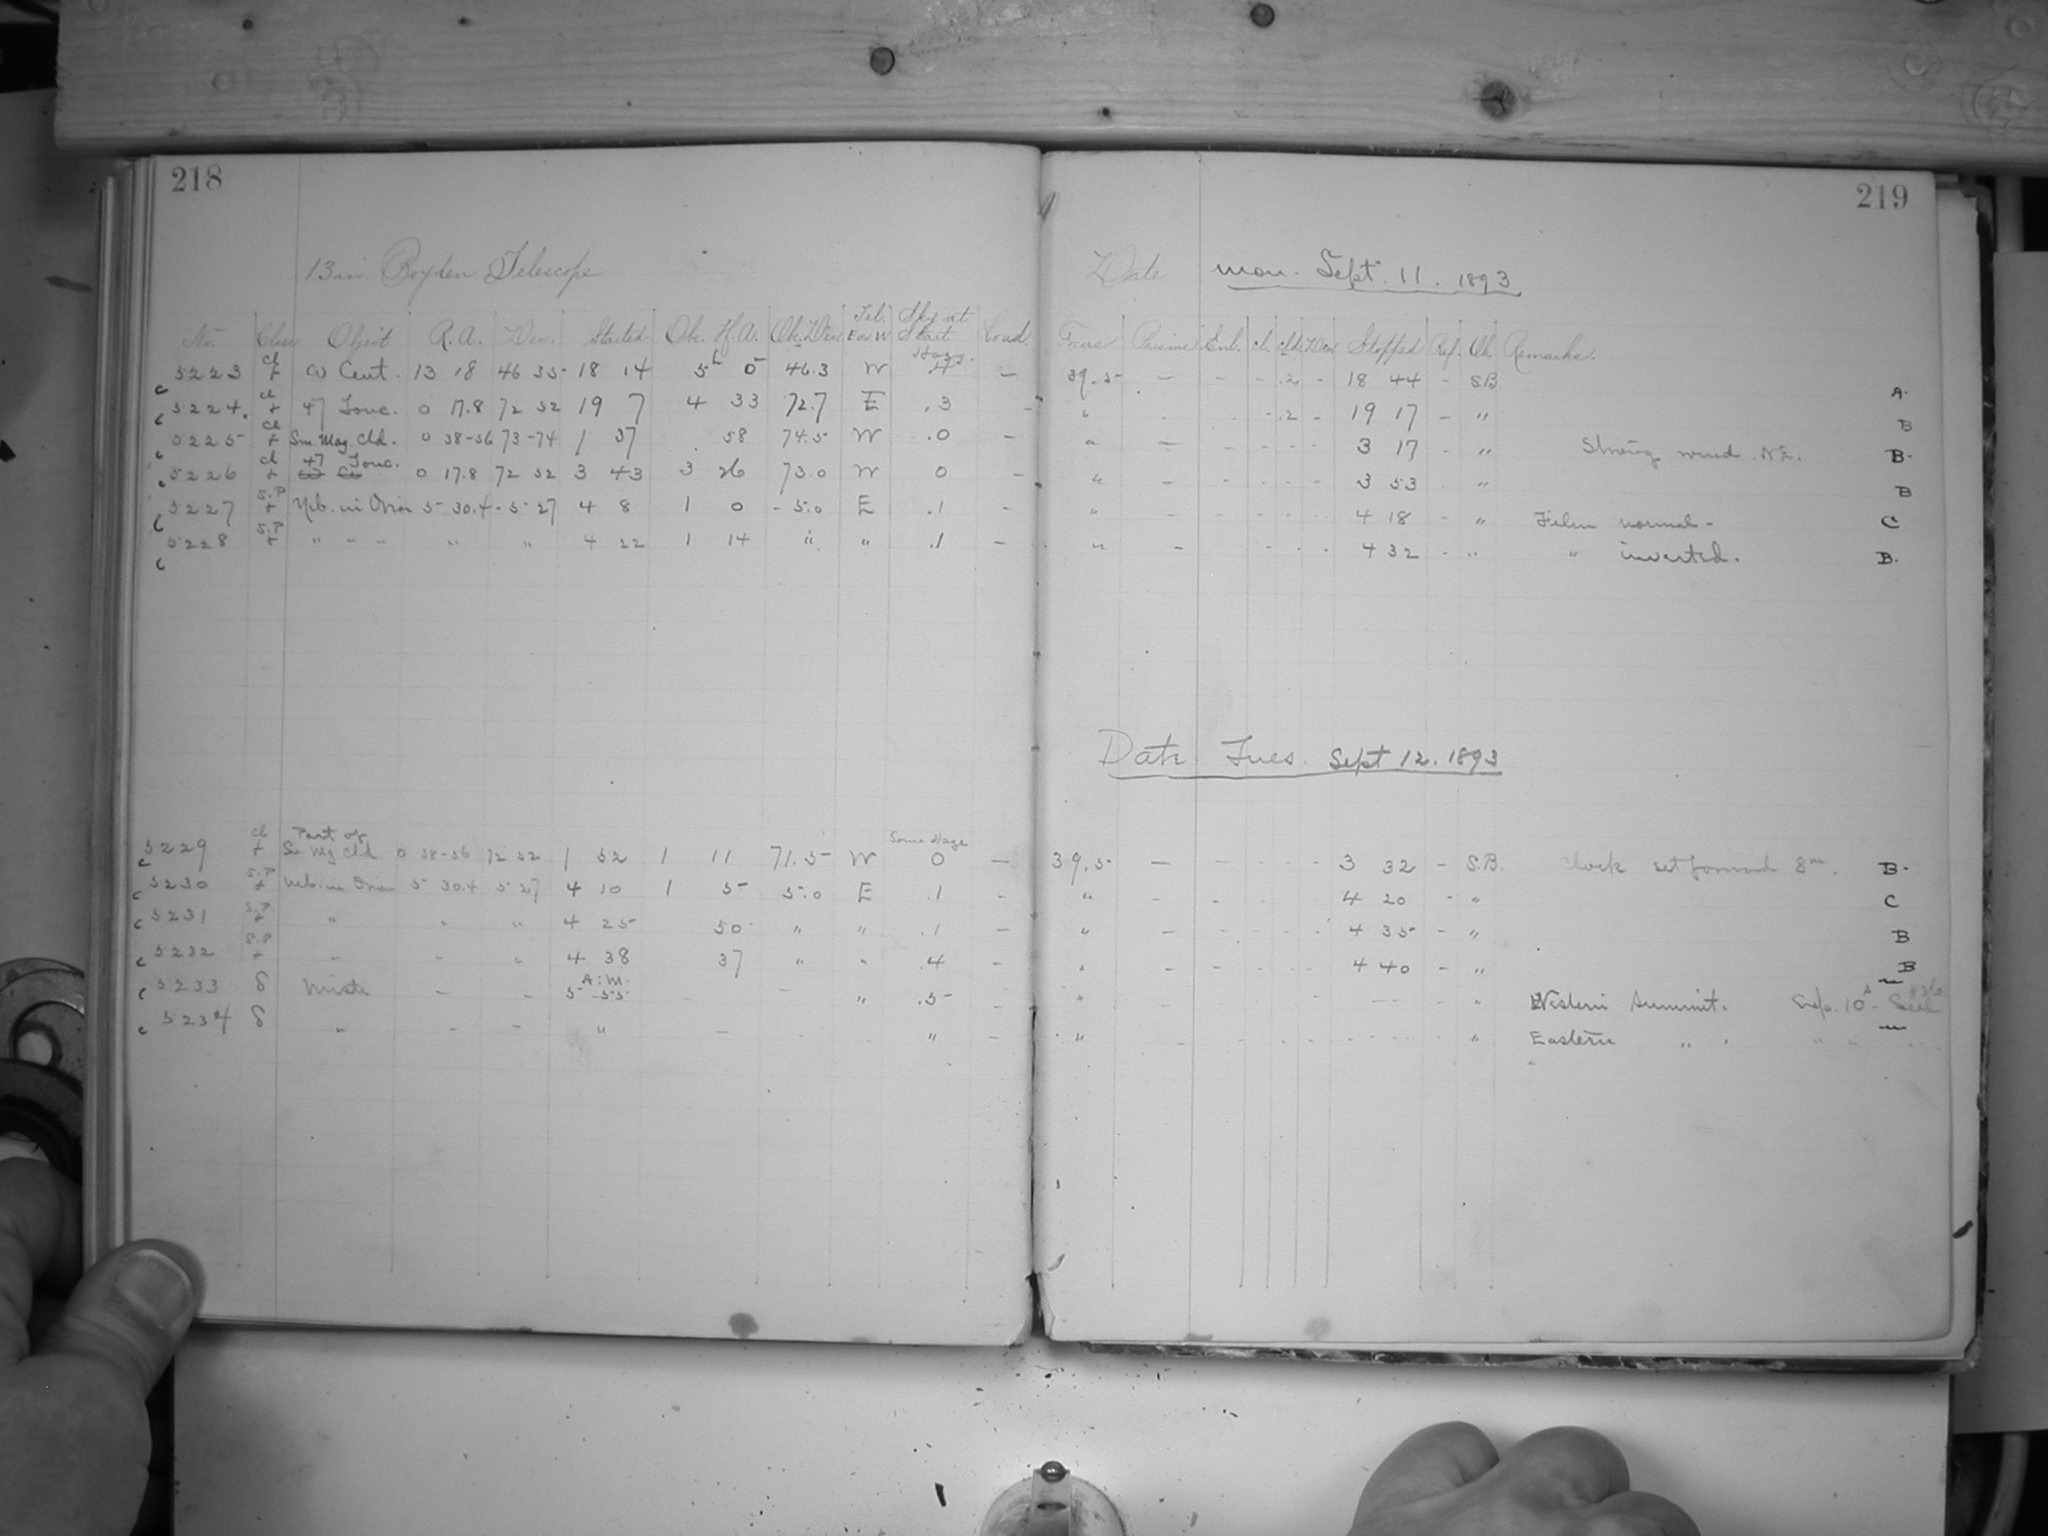 218
13 in. Boyden Telescope
No. Class Object R.A. Dec. Started Ob. H.A. Ob. Dec. Tel. E or W Sky at Start
Hazy.
5223 cl + ω Cent. 13 18 46 35 18 14 5 0 46.3 W .4 —
5224. cl + 47 Touc. 0 17.8 72 52 19 7 4 33 72.7 E .3 -
5225 cl + Sm. Mag. Cld. 0 38-56 73-74 1 37 58 74.5 W .0 —
5226 cl + 47 Touc. 0 17.8 72 52 3 43 3 26 73.0 W 0 -
5227 S.P + Neb. in Orion 5 30.4 - 5 27 4 8 1 0 - 5.0 E .1 -
5228 S.P + " " " " " 4 22 1 14 " " .1 —
5229 cl + Part of Sm Mg Cld 0 38-56 72 52 1 52 1 11 71.5 W Some Haze 0 —
5230 S.P + Neb. in Orion 5 30.4 5 27 4 10 1 5 5.0 E .1 -
5231 S.P + " " " 4 25 50 " " .1 —
5232 S.P + " " " 4 38 37 " " .4 -
5233 δ Misti - - A.M. 5 55 - - " .5 -
5234 δ " - - " - "  -
219
Date Mon. Sept. 11. 1893
Focus Prisms Enl. cl. cld. Dew Stopped Ref. Ob. Remarks.
39.5 — - - .2 - 18 44 - S.B. A.
" - - - .2 - 19 17 - " B
" — - - - - 3 17 - " Strong wind N.E. B.
" - - - - - 3 53 - " B
" - - - - - 4 18 - " Film normal - C
" - - - - 4 32 - " " inverted. B.
Date Tues. Sept 12. 1893
39.5 — - - - - 3 32 - S.B. Clock set forward 8m. B.
" - - - - 4 20 - " C
" - - - - - 4 35 - " B
" - - - - 4 40 - " B
" - - - - " Western Summit. Exp. 10
" - - - - " Eastern " " "